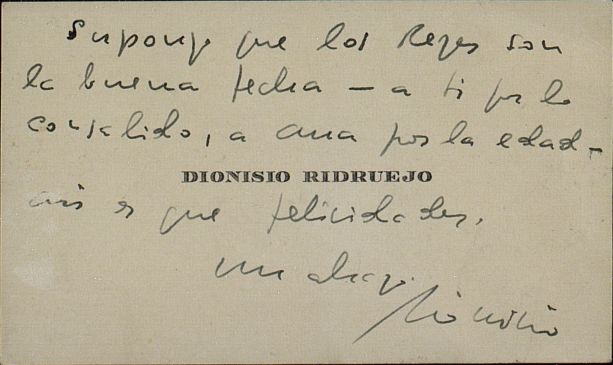 Supongo que los Reyes son
la buena fecha — a ti por lo
consabido, a Ana por la edad —
DIONISIO RIDRUEJO
así es que felicidades.
un abrazo
Dionisio